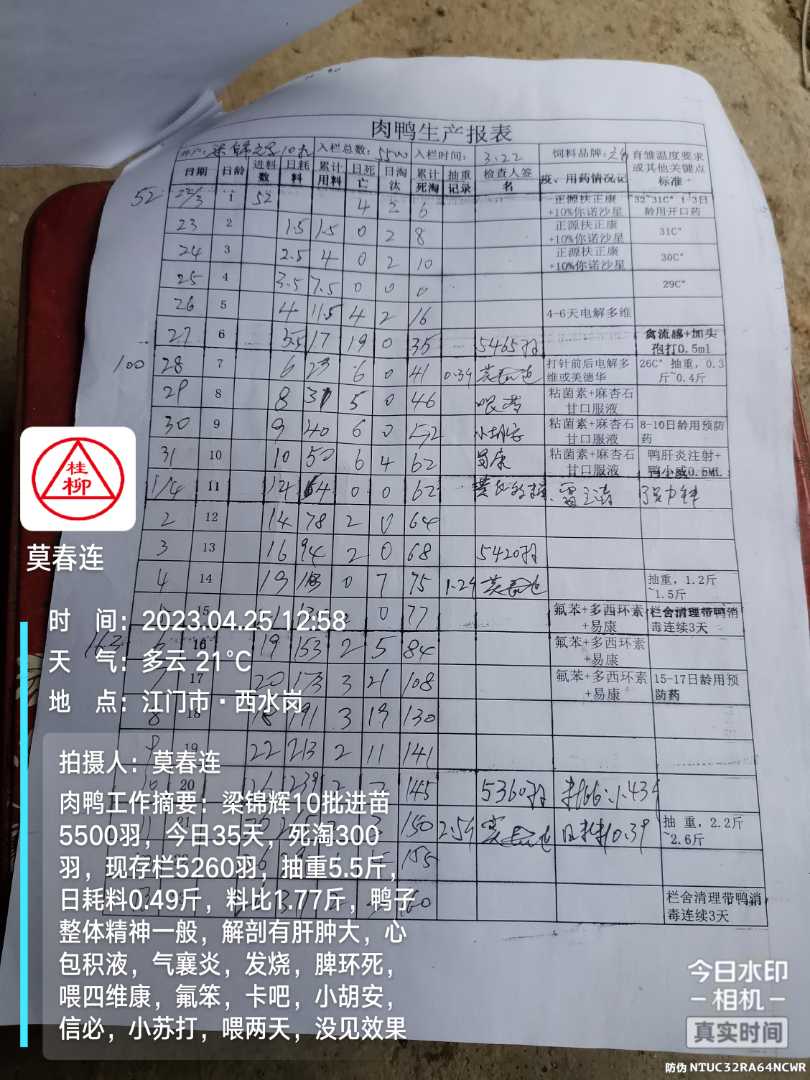 肉鸭生产报表
入栏总数: 5500 入栏时间: 3.22 饲料品牌:
育雏温度要求或其他关键点标准
日期 日龄 进料数 日耗料 累计用料 日死亡 日淘汰 累计死淘 抽重记录 检查人签名 疫、用药情况记
52 22/3 1 52 4 2 6 正源扶正康+10%你诺沙星 32°31C° 1-3日龄用开口药
23 2 1.5 1.5 0 2 8 正源扶正康+10%你诺沙星 31C°
24 3 2.5 4 0 2 10 正源扶正康+10%你诺沙星 30C°
25 4 3.5 7.5 0 0 0 29C°
26 5 4 11.5 4 2 16 4-6天电解多维
27 6 5.5 17 19 0 35 5465羽 禽流感+加头孢打0.5ml
100 28 7 6 23 6 0 41 0.39 打针前后电解多维或美德华 26C° 抽重,0.3斤~0.4斤
29 8 8 31 5 0 46 粘菌素+麻杏石甘口服液
30 9 9 40 6 0 52 小胡安 粘菌素+麻杏石甘口服液 8-10日龄用预防药
31 10 10 50 6 4 62 粘菌素+麻杏石甘口服液 鸭肝炎注射+鸭小感0.5ML
1/4 11 14 64 0 0 62
2 12 14 78 2 0 64
3 13 16 94 2 0 68 5420羽
4 14 19 113 0 7 75 1.29 抽重,1.2斤~1.5斤
15 0 77 氟苯+多西环素+易康 栏舍清理带鸭消毒连续3天
16 19 153 2 5 84 氟苯+多西环素+易康
17 20 173 3 21 108 氟苯+多西环素+易康 15-17日龄用预防药
8 18 18 191 3 19 130
9 19 22 213 2 11 141
20 145 5360羽
21 150 2.59 日耗料0.39 抽重,2.2斤~2.6斤
155
160 栏舍清理带鸭消毒连续3天
桂柳
莫春连
时 间: 2023.04.25 12:58
天 气: 多云 21℃
地 点: 江门市·西水岗
拍摄人: 莫春连
肉鸭工作摘要: 梁锦辉10批进苗
5500羽,今日35天,死淘300
羽,现存栏5260羽,抽重5.5斤,
日耗料0.49斤,料比1.77斤,鸭子
整体精神一般,解剖有肝肿大,心
包积液,气襄炎,发烧,脾环死,
喂四维康,氟笨,卡吧,小胡安,
信必,小苏打,喂两天,没见效果
今日水印
-相机-
真实时间
防伪 NTUC32RA64NCWR